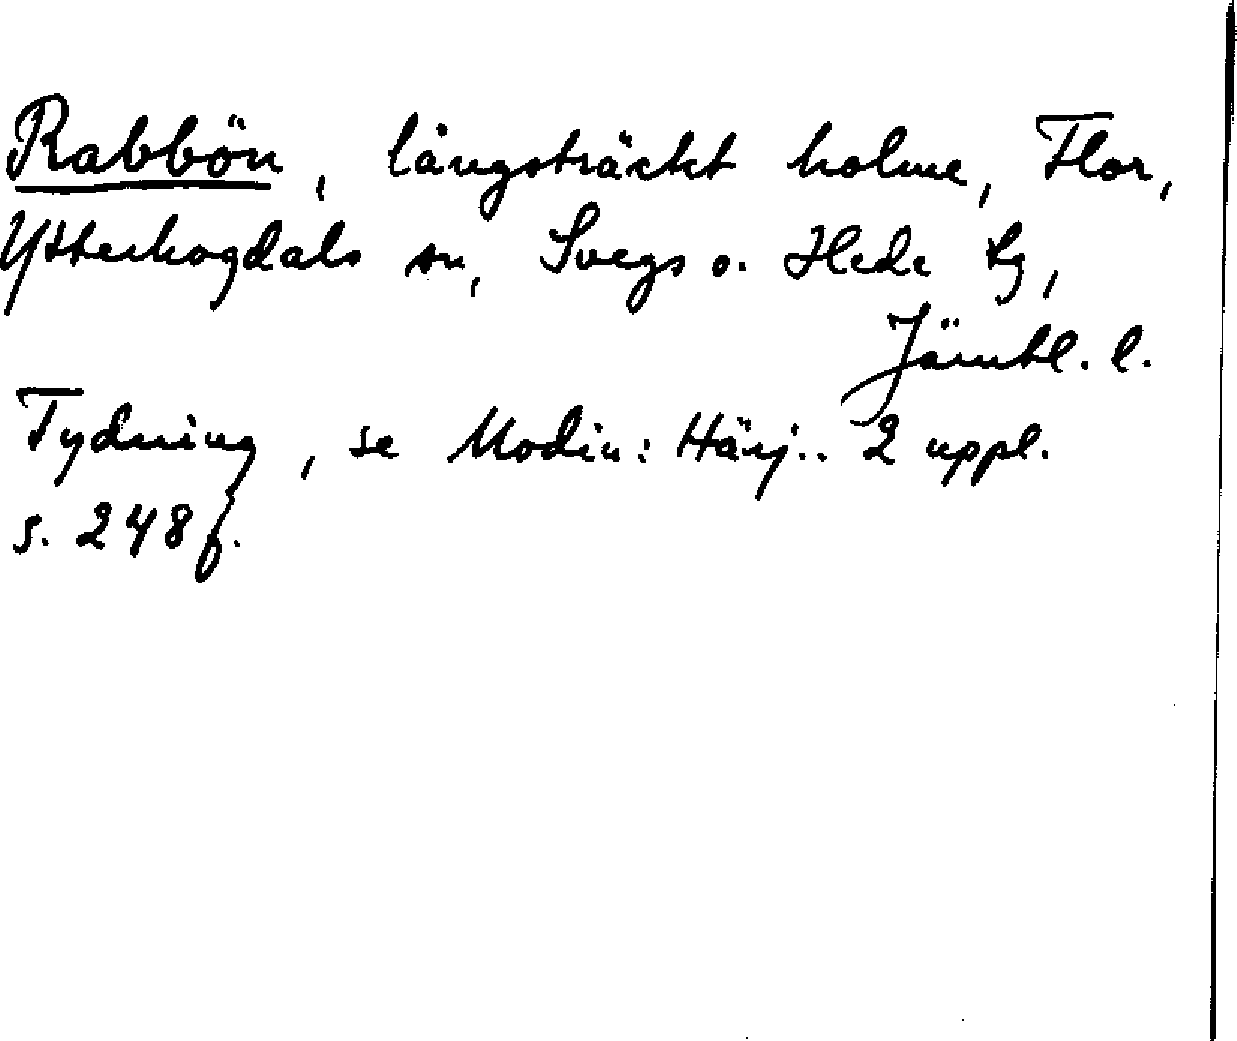 Rabbön, långsträckt holme, Flor,
Ytterhogdals sn, Svegs o. Hede tg,
Jämtl. l.
Tydning, se Modin: Härj.. 2 uppl.
s. 248 f.